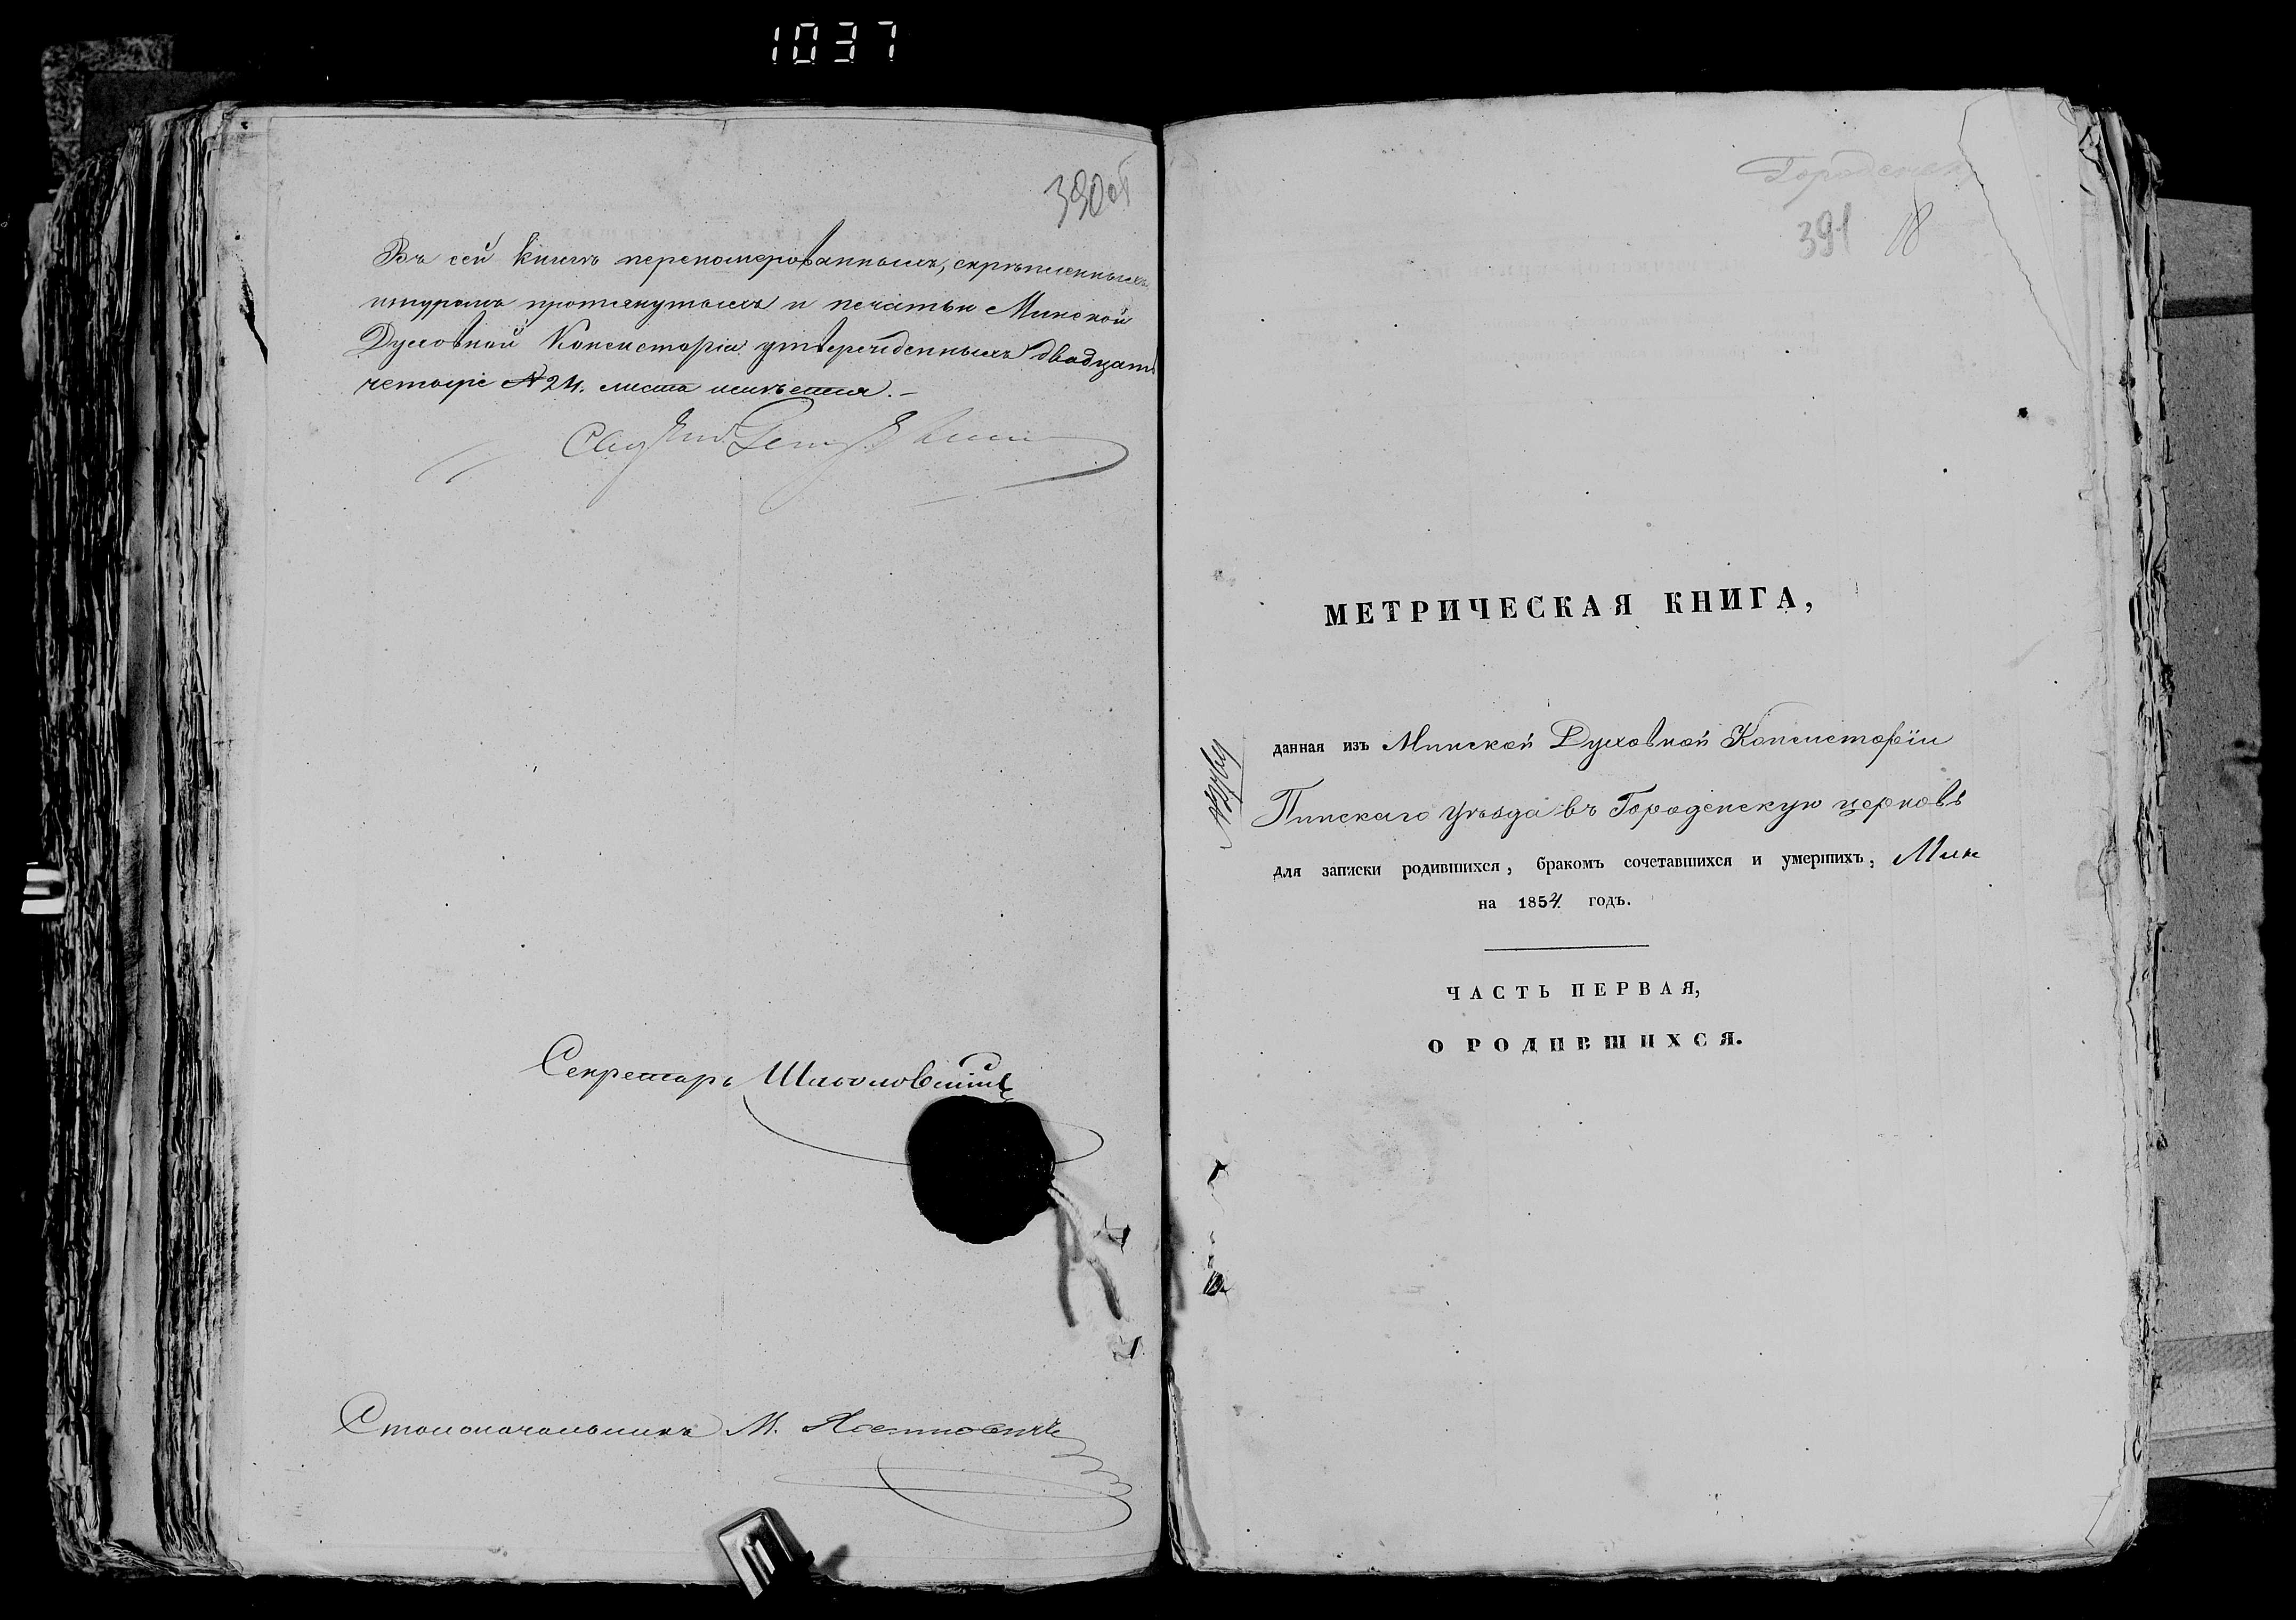 1037
390 об
Въ сей книгѣ переномерованныхъ, скрѣпленныхъ
шнуромъ протянутыхъ и печатью Минской
Духовной Консисторіи утвержденныхъ двадцать
четыре №24. листа имѣется.
Секретарь
Столоначальникъ М.
391 18
МЕТРИЧЕСКАЯ КНИГА,
данная изъ Минской Духовной Консисторіи
Пинскаго уѣзда въ Городенскую церковь
для записки родившихся, бракомъ сочетавшихся и умершихъ,
на 1854 годъ.
ЧАСТЬ ПЕРВАЯ,
О РОДИВШИХСЯ.